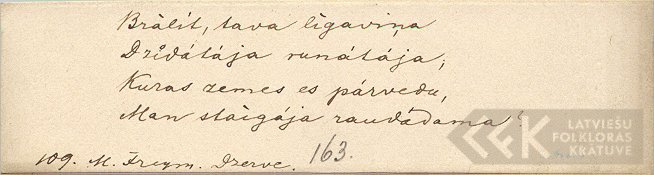 Brālīt, tava līgaviņa
Dziedātāja runātāja;
Kuras zemes es pārvedu,
Man staigāja raudādama!
109. M. Freym. Dzerve. 163.
LATVIEŠU
FOLKLORAS
KRĀTUVE